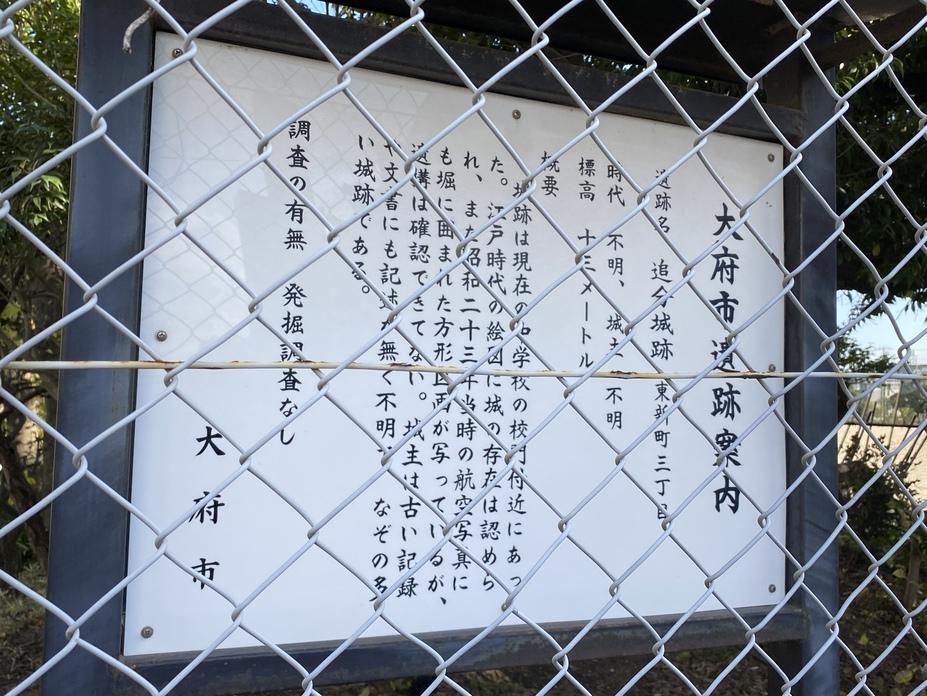 大府市遺跡案内
遺跡名 追分城跡 東新町三丁目
時代 不明、城主 不明
標高 十三メートル
概要
城跡は現在の中学校の校門付近にあっ
た。江戸時代の絵図に城の存在は認めら
れ、また昭和二十三年当時の航空写真に
も堀に囲まれた方形区画が写っているが、
遺構は確認できてない。城主は古い記録
や文書にも記述が無く不明、なぞの多
い城跡である。
調査の有無 発掘調査なし
大府市